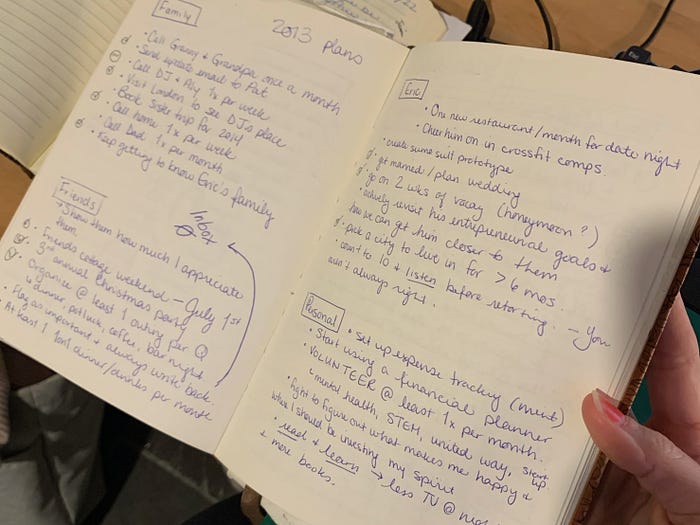 2013 plans
Family
• Call Granny & Grandpa once a month
• Send update email to Pat
• Call DJ & Ally 1x per week
• Visit London to see DJ's place
• Book Sister trip for 2014
• Call home, 1x per week
• Call Dad, 1x per month
• Keep getting to know Eric's family
Friends
→ Show them how much I appreciate
them
• Friends cottage weekend - July 1st
• 3rd annual Christmas party
• Organize @ least 1 outing per Q
↳ dinner, potluck, coffee, bar night
• Flag as important & always write back.
• At least 1 dinner/drinks per month
Inbox
Eric
• One new restaurant/month for date night
• Cheer him on in crossfit comps.
• create sumo suit prototype
• get married/plan wedding
• go on 2 wks of vacay (honeymoon?)
• actively revisit his entrepreneurial goals &
how we can get him closer to them
• pick a city to live in for > 6 mos.
• count to 10 & listen before retorting. - You
aren't always right.
Personal
• Set up expense tracking (mint)
• Start using a financial planner
• VOLUNTEER @ least 1x per month.
↳ mental health, STEM, united way, start
up.
• fight to figure out what makes me happy &
where I should be investing my spirit
• read & learn → less TV @
& more books.